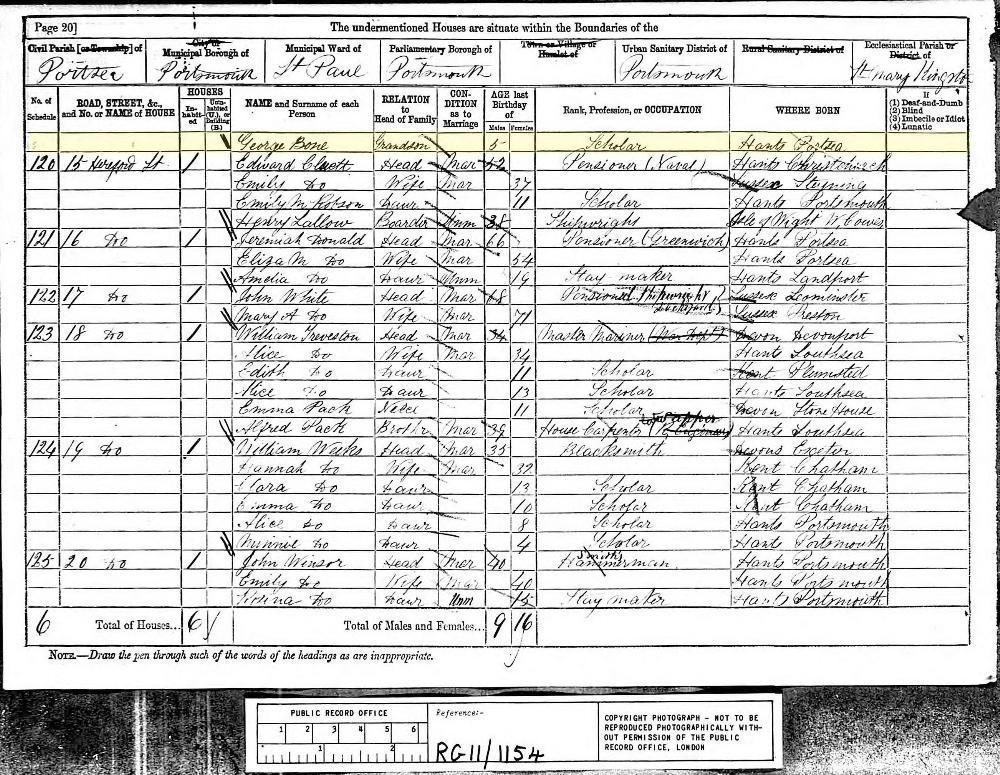 Page 20] The undermentioned Houses are situate within the Boundaries of the
Civil Parish [or Township] of City or Municipal Borough of Municipal Ward of Parliamentary Borough of Town or Village or Hamlet of Urban Sanitary District of Rural Sanitary District of Ecclesiastical Parish or District of
Portsea Portsmouth St Paul Portsmouth Portsmouth St Mary
No. of Schedule ROAD, STREET, &c., and No. or NAME of HOUSE HOUSES In-habited Uninhabited (U.), or Building (B.) NAME and Surname of each Person RELATION to Head of Family CONDITION as to Marriage AGE last Birthday of Males Females Rank, Profession, or OCCUPATION WHERE BORN If (1) Deaf-and-Dumb (2) Blind (3) Imbecile or Idiot (4) Lunatic
George Bone Grandson 5 Scholar Hants Portsea
120 15 Hereford St 1 Edward Head Mar 52 Pensioner (Naval) Hants Christchurch
Emily Do Wife Mar 37 Sussex Steyning
Emily M Daur 11 Scholar Hants Portsmouth
Henry Lallow Boarder Unm 38 Shipwright Isle of Wight W Cowes
121 16 Do 1 Jeremiah Donald Head Mar 66 Pensioner (Greenwich) Hants Portsea
Eliza M Do Wife Mar 54 Hants Portsea
Amelia Do Daur Unm 19 Stay maker Hants Landport
122 17 Do 1 John White Head Mar 68 Pensioned Shipwright Sussex Leominster
Mary A Do Wife Mar 71 Sussex Preston
123 18 Do 1 William Treveston Head Mar 34 Master Mariner (War Dept) Devon Devonport
Alice Do Wife Mar 34 Hants Southsea
Edith Do Daur 11 Scholar Kent Plumsted
Alice Do Daur 13 Scholar Hants Southsea
Emma Pack Niece 11 Scholar Devon Stone House
Alfred Pack Brothr Mar 39 House Carpenter Hants Southsea
124 19 Do 1 William Weeks Head Mar 35 Blacksmith Devons Exeter
Hannah Do Wife Mar 32 Kent Chatham
Clara Do Daur 13 Scholar Kent Chatham
Emma Do Daur 10 Scholar Kent Chatham
Alice Do Daur 8 Scholar Hants Portsmouth
Minnie Do Daur 4 Scholar Hants Portsmouth
125 20 Do 1 John Winsor Head Mar 40 Smiths Hammerman Hants Portsmouth
Emily Do Wife Mar 40 Hants Portsmouth
Rosina Do Daur Unm 15 Stay maker Hants Portsmouth
6 Total of Houses... 6 Total of Males and Females... 9 16
NOTE.—Draw the pen through such of the words of the headings as are inappropriate.
PUBLIC RECORD OFFICE
1 2 3 4 5 6
1 2
Reference:-
RG11/1154
COPYRIGHT PHOTOGRAPH - NOT TO BE
REPRODUCED PHOTOGRAPHICALLY WITH-
OUT PERMISSION OF THE PUBLIC
RECORD OFFICE, LONDON